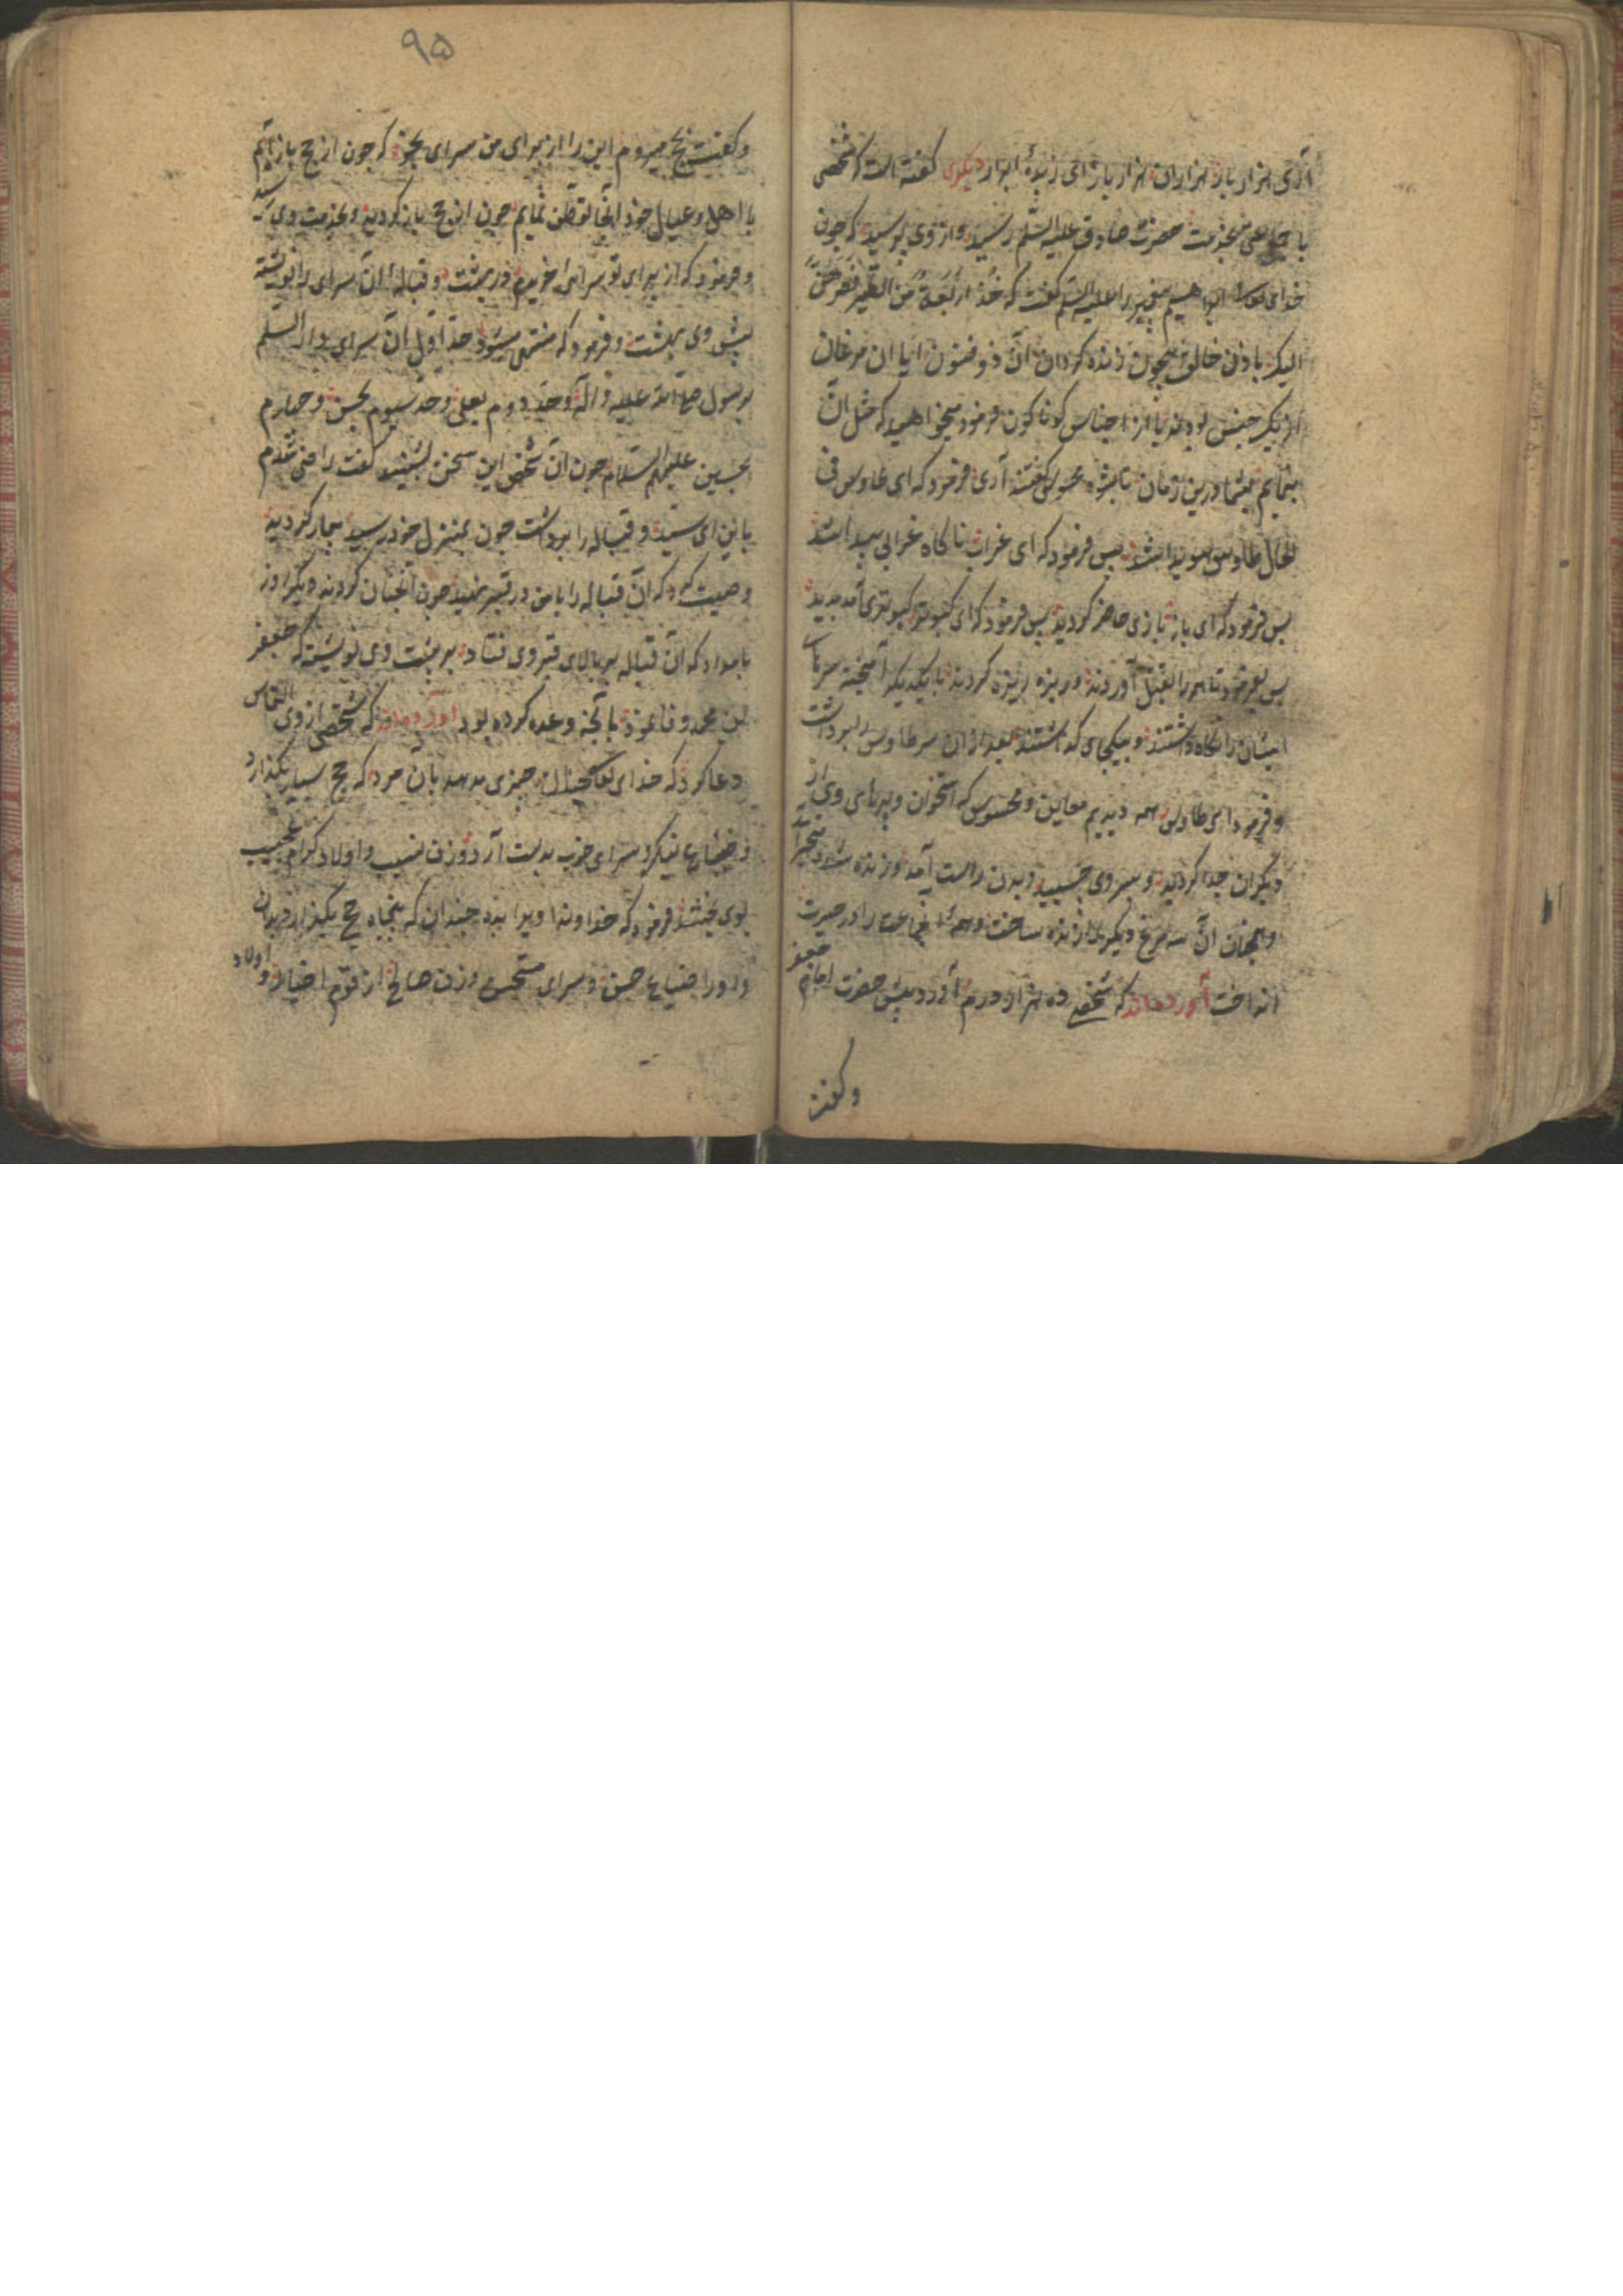 آری هزار بار هزاران هزار بار ای زبدۀ ابرار دیگری گفته است که شخصی
با جمعی بخدمت حضرت صادق علیه السلم رسید و از وی پرسید که چون
خدای تعالی ابراهیم پیغمبر را علیه السلم گفت که خُذْ اَرْبَعَةً مِنَ الطَّیْرِ فَصُرْهُنَّ
الیک باذن خالق بیچون زنده کردان آن ذو فنون ایا ان مرغان
از یک جنس بودند یا از اجناس کوناکون فرمود میخواهید که مثل ان
بنمایم بشما درین زمان گفتند آری فرمود که ای طاوس فی
الحال طاوس هویدا شد پس فرمود که ای غراب ناکاه غرابی پیدا شد
پس فرمود که ای باز بازی حاضر کردید پس فرمود که ای کبوتر کبوتری آمد پدید
پس بفرمود تا همه را بقتل آوردند و ریزه ریزه کردند با یکدیکر آمیخته سرهای
ایشان را نکاه داشتند و بیکجای که اشتند بعد از ان سر طاوس را برداشت
و فرمود ای طاوس همه دیدیم معاین و محسوس که استخوان و پرهای وی از
دیکران جدا کردید و بسر وی چسپید و بدن راست آمد و زنده شد
و همچنان آن سه مرغ دیکر را زنده ساخت و همۀ انجماعت را در حیرت
انداخت آورده‌اند که شخصی ده هزار درم آورد پیش حضرت امام جعفر
و کفت
۹۵
و کفت بحج میروم این را از برای من سرای بخر که چون از حج باز آیم
با اهل و عیال خود انجا توطن نمایم چون از حج باز کردید و بخدمت وی رسید
فرمود که از برای تو سرای خریدم در بهشت و قبالۀ آن سرای را نوشته
پیش وی بهشت و فرمود که منتهی میشود حد اول آن سرای دار السلم
برسول صلی الله علیه و آله و حد دوم بعلی و حد سیوم بحسن و چهارم
بحسین علیهم السلام چون آن شخص این سخن بشنید کفت راضی شدم
باین ای سید و قباله را برداشت چون بمنزل خود رسید بیمار کردید
وصیت کرد که آن قباله را با من در قبر نهید چون آنچنان کردند دیکر روز
بامداد که آن قباله بر بالای قبر وی فتاد بر پشت وی نوشته که جعفر
بن محمد وفا نمود بآنچه وعده کرده بود آورده‌اند که شخصی از وی التماس
دعا کرد که خدای تعالی چیزی بدهد بان مرد که حج بسیار بکذارد
و ضیاع نیکو و سرای خوب بدست آرد و زن نسیب و اولاد کرام نجیب
بوی بخشد فرمود که خداوندا ویرا بده چندان که پنجاه حج بکذارد بدان
و اورا ضیاع حسن و سرای مستحسن و زن صالح از قوم اخیار و اولاد